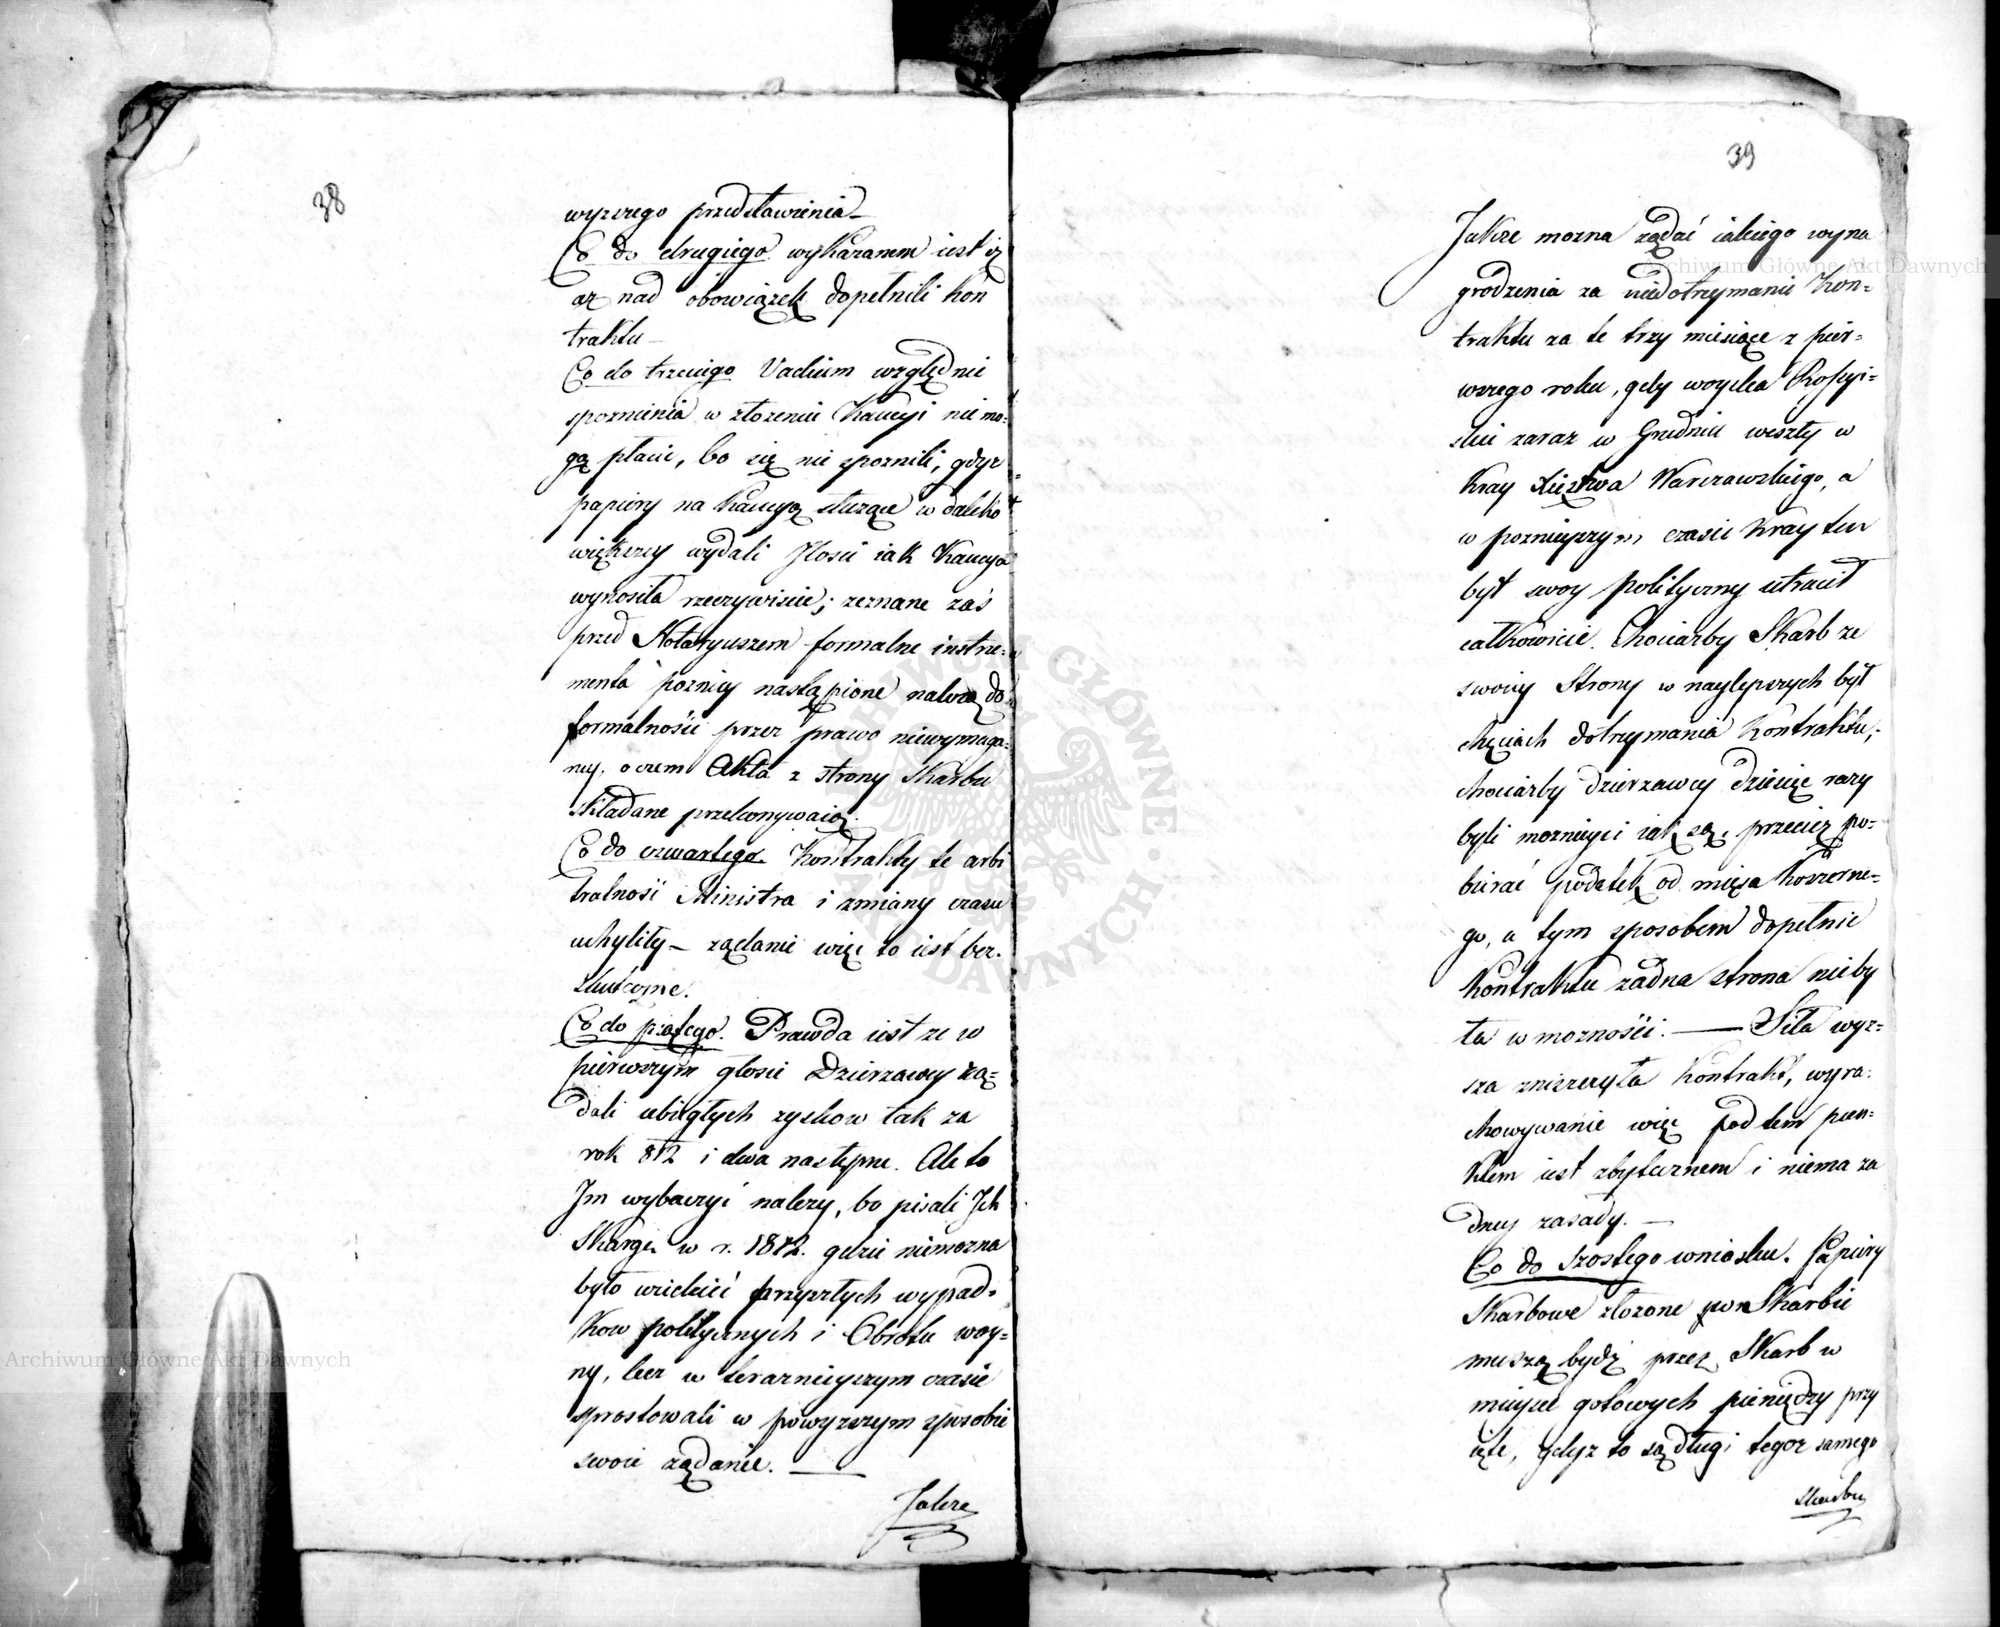 38
wyzszego przedstawienia
Co do drugiego wykazanem iest iż
aż nad obowiązek dopełnili kon
traktu
Co do trzeciego Vadium względnie
spoznienia w złozeniu Kaucyi nie mo-
gą płacić, bo się nie spoznili, gdyz
papiery na Kaucyą służące w daleko
większey wydali Jlości iak Kaucya
wynosiła rzeczywiscie; zeznane zaś
przed Notaryuszem formalne instru-
menta pozniey nastąpione należą do
formalności przez prawo niewymaga-
ney, o czem Akta z strony Skarbu
składane przekonywaią.
Co do czwartego. Kontrakty te arbi
tralność Ministra i zmiany czasu
uchyliły – ządanie więc to iest bez-
skuteczne.
Co do piątego. Prawda iest ze w
pierwszym głosie Dzierzawcy żą-
dali ubiegłych zyskow tak za
rok 812 i dwa następne. Ale to
Im wybaczyć nalezy, bo pisali Ich
Skargę w r. 1812. gdzie niemozna
było wiedzieć przyszłych wypad-
kow politycznych i Obrotu woy-
ny, lecz w teraznieyszym czasie
sprostowali w powyzszym sposobie
swoie ządanie.
Jakze
39
Jakze mozna ządać iakiego wyna
grodzenia za niedotrzymanie Kon-
traktu za te trzy miesiące z pier-
wszego roku, gdy woyska Rossyi-
skie zaraz w Grudniu weszły w
Kray Xięztwa Warszawskiego, a
w poznieyszym czasie Kray ten
był swoy polityczny utracił
całkowicie. Chociażby Skarb ze
swoiey Strony w naylepszych był
chęciach dotrzymania Kontraktu,
chociażby dzierzawcy dziesięc razy
byli moznieysi iak są, przeciez po-
bierać podatek od mięsa koszerne-
go, a tym sposobem dopełnić
Kontraktu zadna strona nie by
ła w mozności. — Siła wyz-
sza zniszczyła Kontrakt, wyra-
chowywanie więc pod tem pun-
ktem iest zbytecznem i niema za
dney zasady. —
Co do szostego wniosku. Papiery
Skarbowe złozone w Skarbie
muszą bydź przez Skarb w
mieysce gotowych pieniędzy przy
ięte, gdyz to są długi tegoz samego
Skarbu
Archiwum Główne Akt Dawnych
Archiwum Główne Akt Dawnych
ARCHIWUM GŁÓWNE AKT DAWNYCH